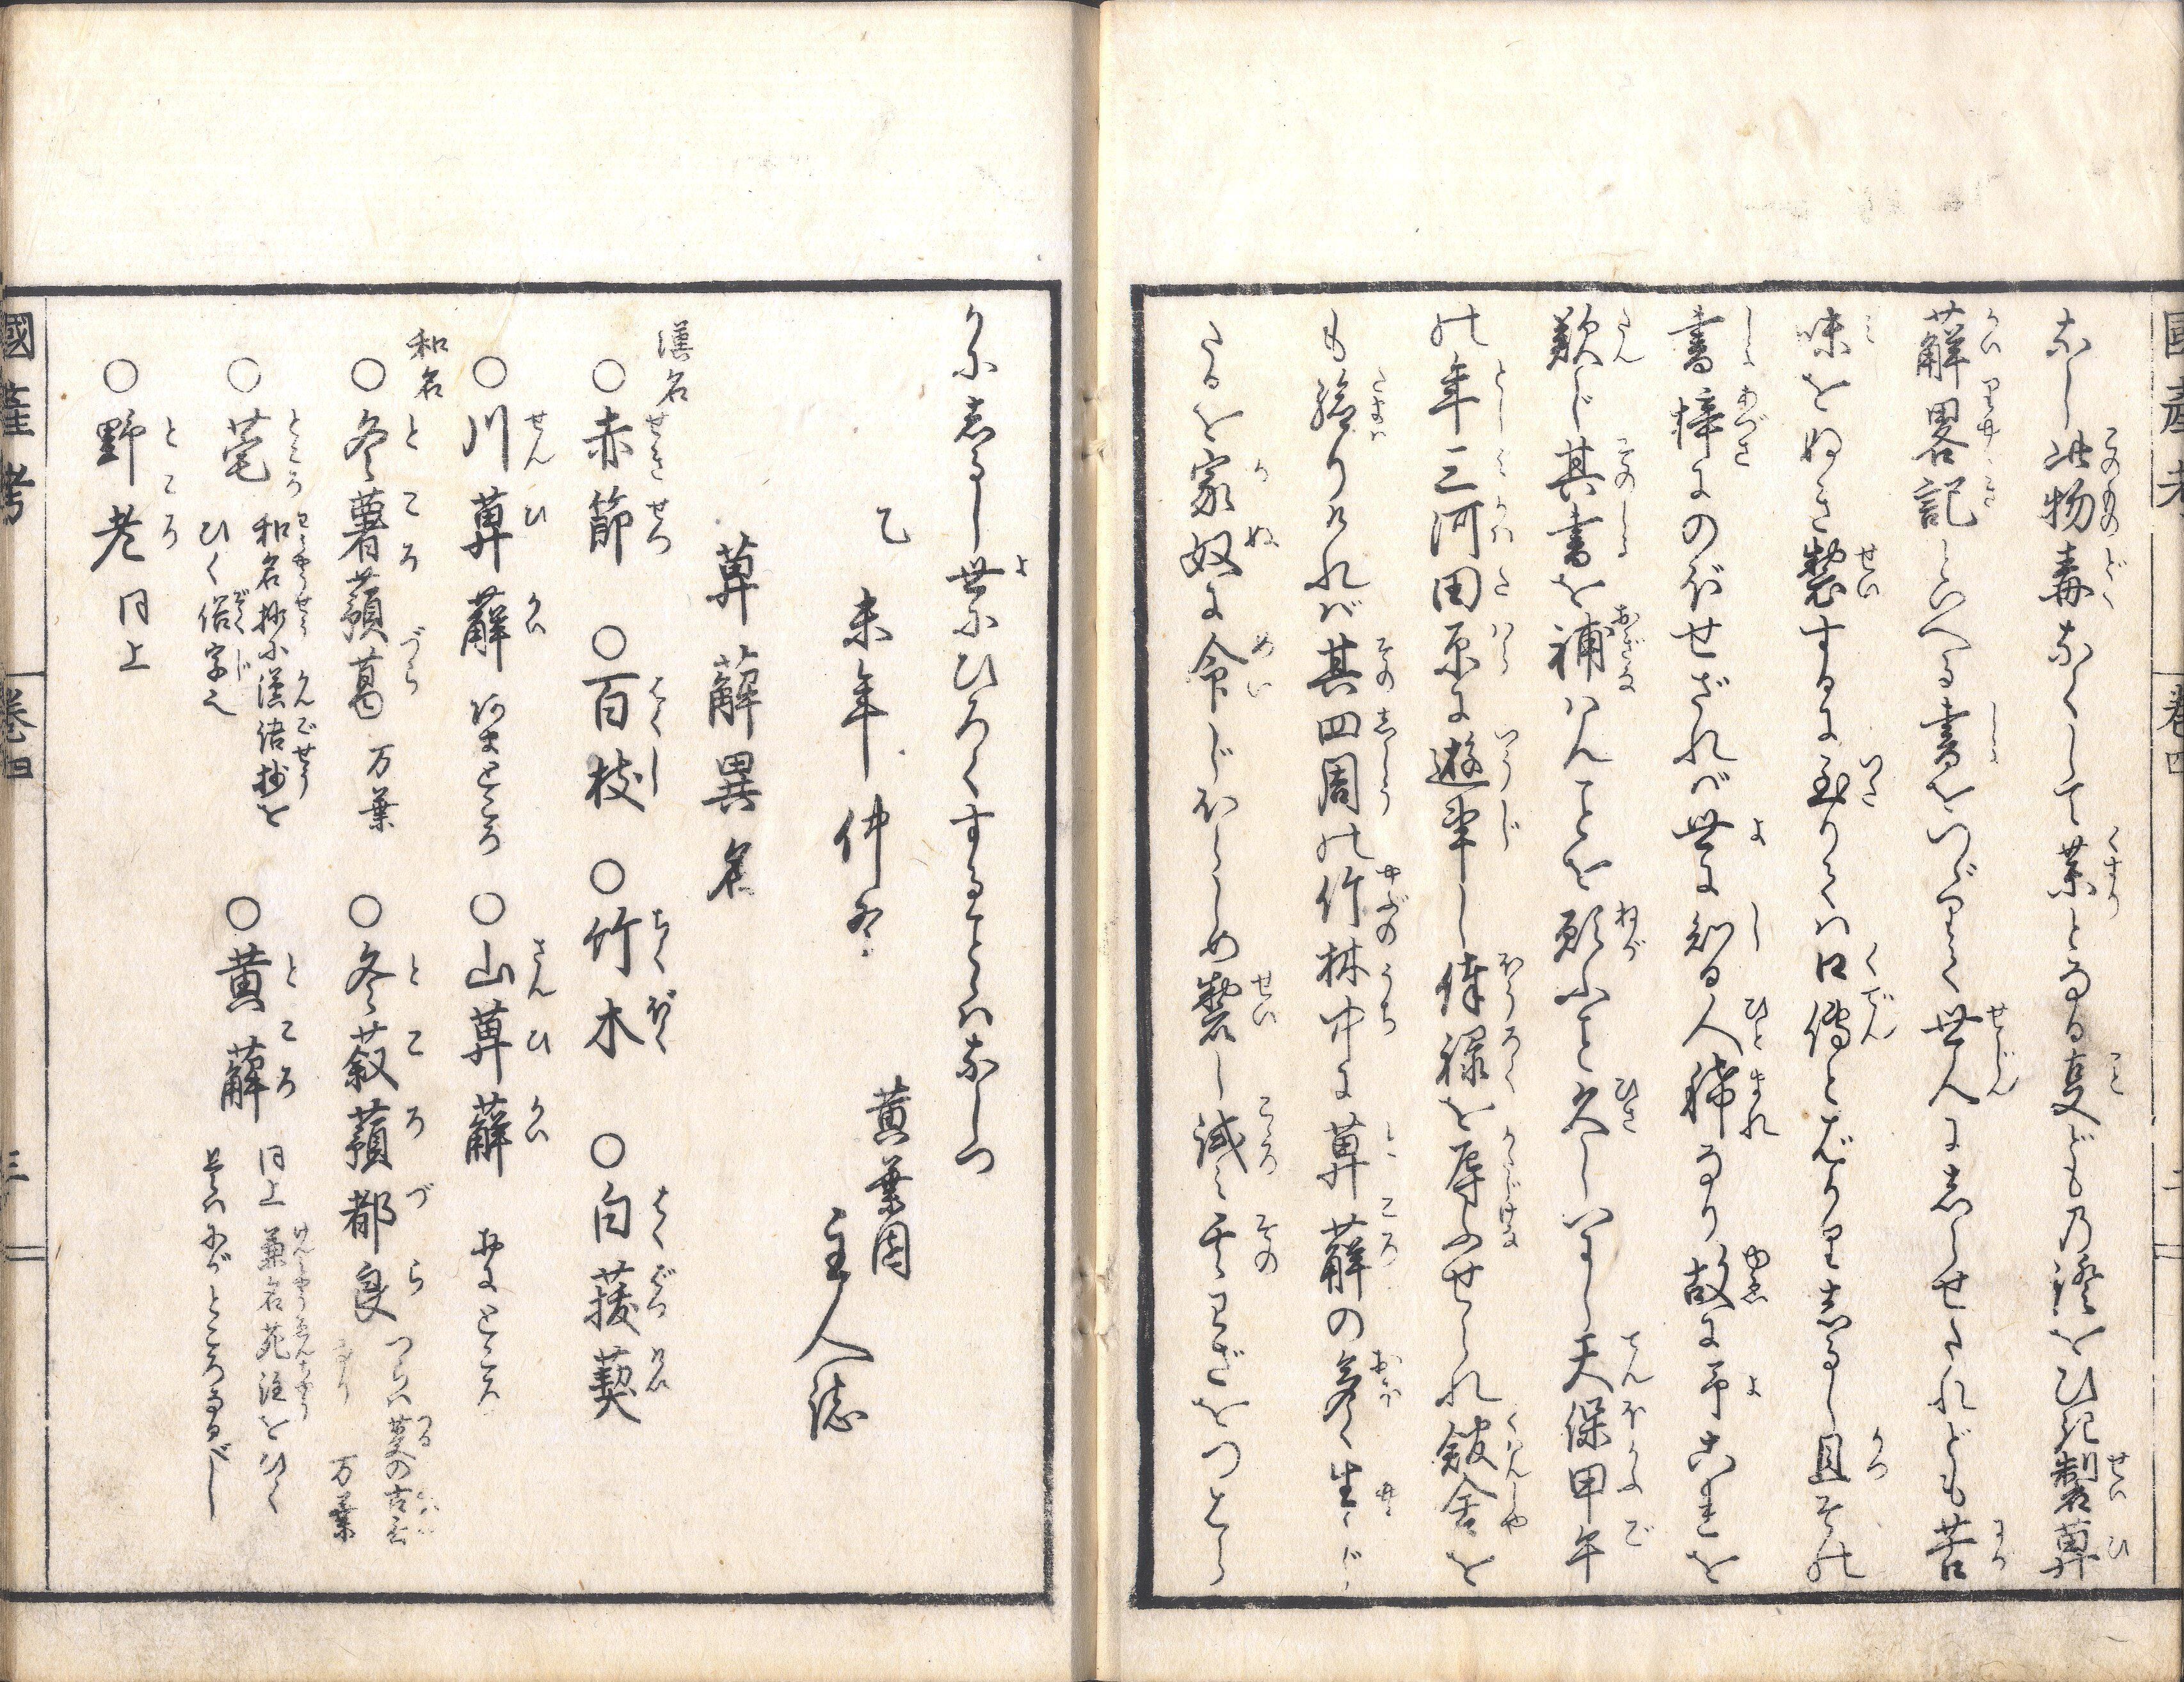 なし此物毒なくして薬となる夏どもの證をひき製萆
薢畧記といへる書をつゞりて世人にしらせたれども苦
味をぬき製するに至りては口傳とばかりしるし且その
書梓にのぼせざれバ世に知る人稀なり故に予これを
歎じ其書を補はんことを願ふこと久しいまし天保甲午
の年三河田原に遊事し俸禄を辱ふせられ館舎を
も給りければ其四周の竹林中に萆薢の多く生じ
たるを家奴に令じほらしめ製し試ミ其わざをつばら
かにしるし世にひろくすることゝハなしつ
乙未年仲冬
黄葉園
主人誌
萆薢異名
漢名
○赤節 ○百枝 ○竹木 ○白菝葜
○川萆薢 ○山萆薢
和名
○冬薯蕷葛 万葉 ○冬叙蕷都良 万葉
○萆 和名抄に漢語抄を
ひく俗字也
○黄薢 同上 兼名苑注をひく
是ハにがところなるべし
○野老 同上
國産考 巻四 三